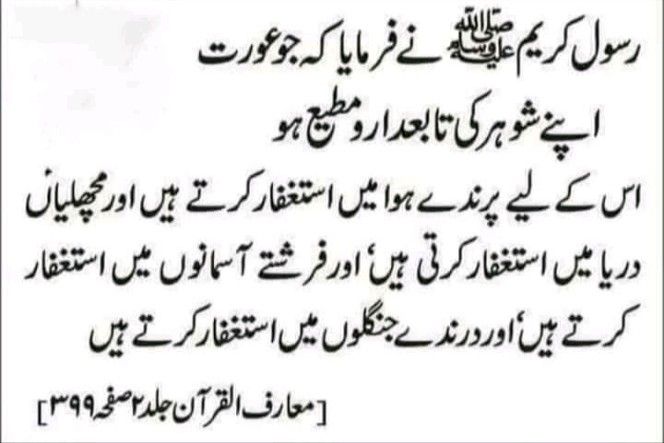 رسول کریم ﷺ نے فرمایا کہ جو عورت
اپنے شوہر کی تابعدار و مطیع ہو
اس کے لیے پرندے ہوا میں استغفار کرتے ہیں اور مچھلیاں
دریا میں استغفار کرتی ہیں، اور فرشتے آسمانوں میں استغفار
کرتے ہیں، اور درندے جنگلوں میں استغفار کرتے ہیں
[معارف القرآن جلد ۲ صفحہ ۳۹۹]